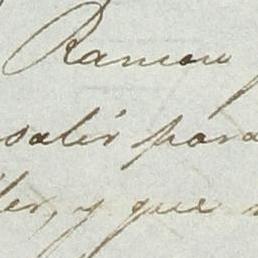 Ramon
salir para
ler, y que